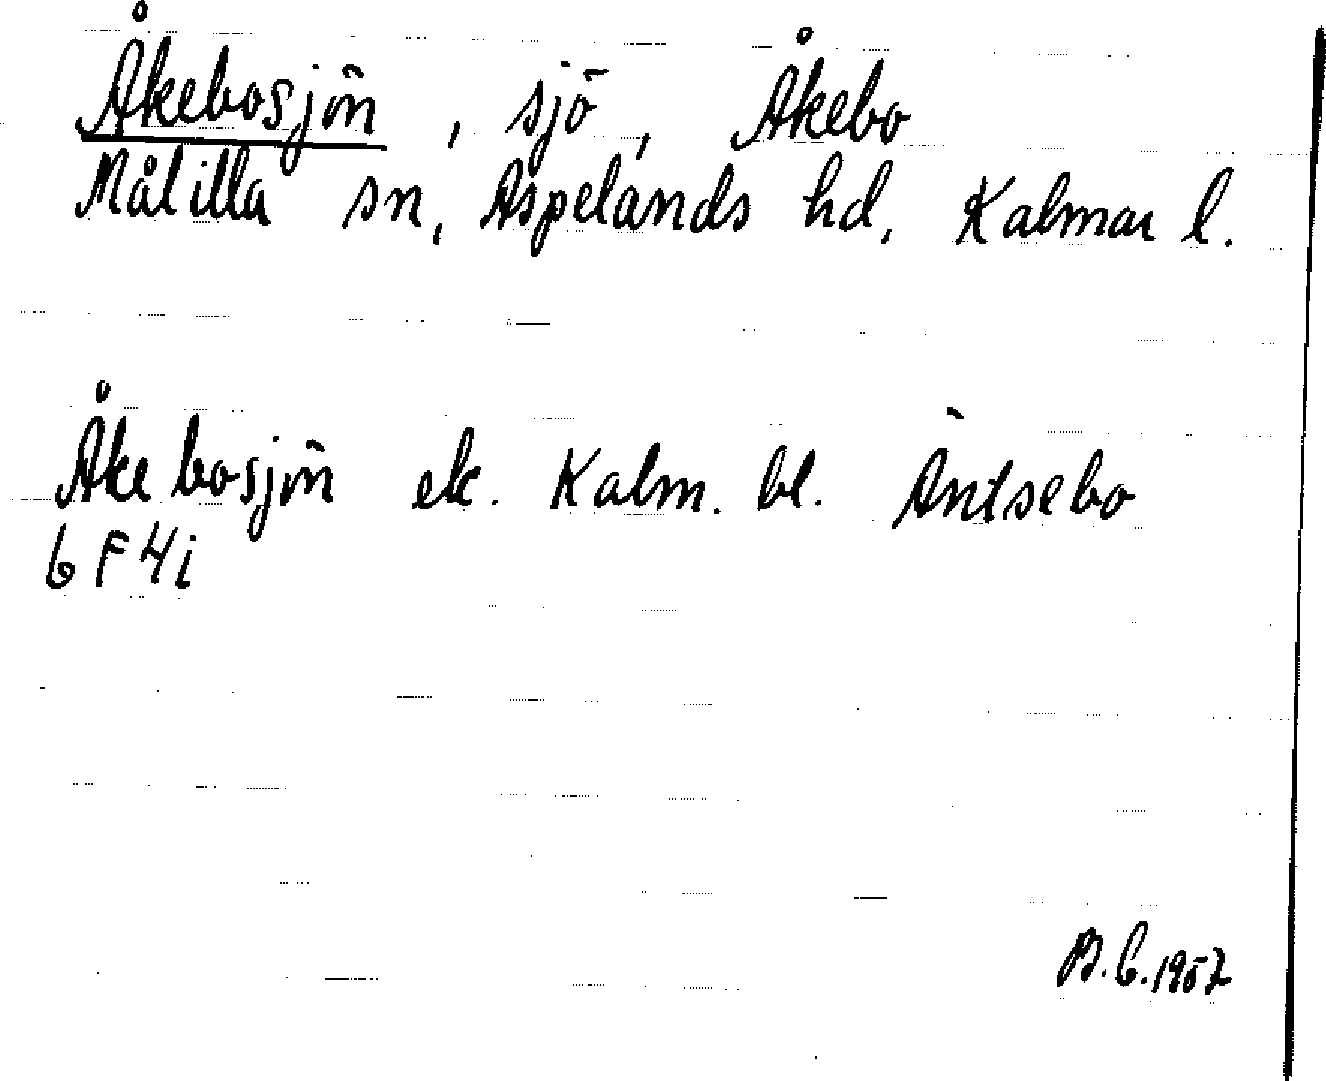 Åkebosjön, sjö, Åkebo
Målilla sn, Aspelands hd, Kalmar l.
Åkebosjön ek. Kalm. bl. Äntsebo
6 F 4i
B.C. 1957